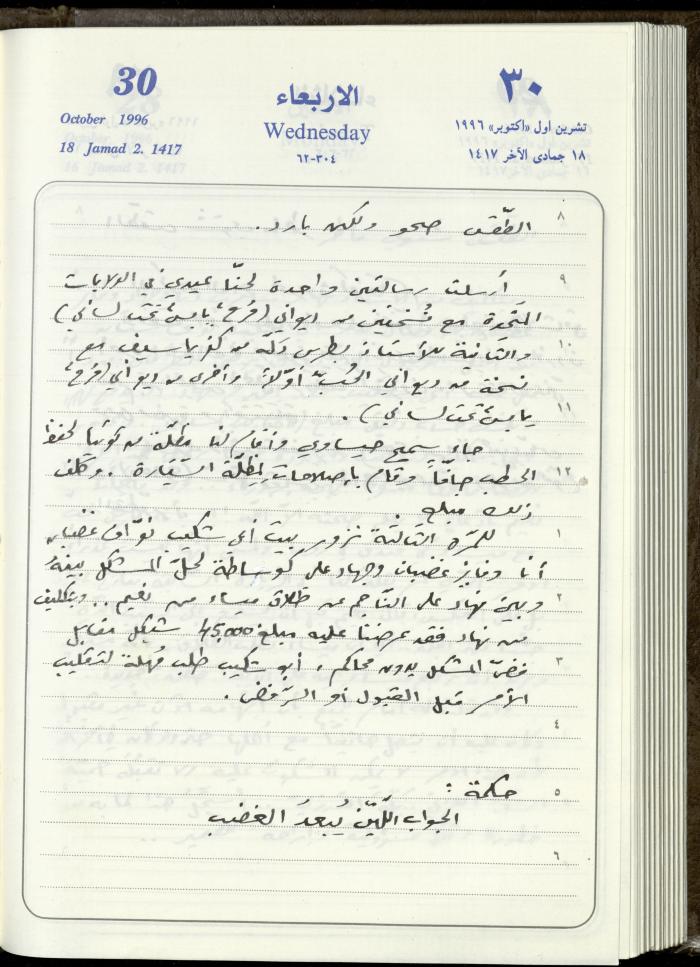 30
October 1996
18 Jamad 2. 1417
الاربعاء
Wednesday
٣٠٤-٦٢
٣٠
تشرين اول «اكتوبر» ١٩٩٦
١٨ جمادى الآخر ١٤١٧
٨
الطّقس صحو ولكن بارد.
٩
أرسلت رسالتين واحدة لحنّا عيدي في الولايات
المتّحدة مع نُسختين من ديواني (فرح يابس تحت لساني)
١٠
والثانية للأستاذ بطرس دلّة من كفر ياسيف مع
نسخة من ديواني الحُبّ أوّلاً وأخرى من ديواني (فرح
١١
يابس تحت لساني).
جاء سميح عيساوي وأقام لنا مظلّة من لحفظ
١٢
الحطب جافّاً وقام بإصلاحات لمظلّة السيّارة. وكلّف
ذلك مبلغ .
١
للمرّة الثالثة نزور بيت أبي شكيب نوّاف غضبان
أنا وفايز غضبان وجهاد علي كوساطة لحلّ المشكل بينهُ
٢
وبين نهاد علي النّاجم عن طلاق ميساء من نعيم .. وبتكليف
من نهاد فقد عرضنا عليه مبلغ 45,000 شيكل مقابل
٣
فضّ المشكل بدون محاكم، أبو شكيب طلب مُهلة لتقليب
الأمر قبل القبول أو الرّفض.
٤
٥
حكمة:
الجواب اللّيّن يُبعدُ الغضب
٦